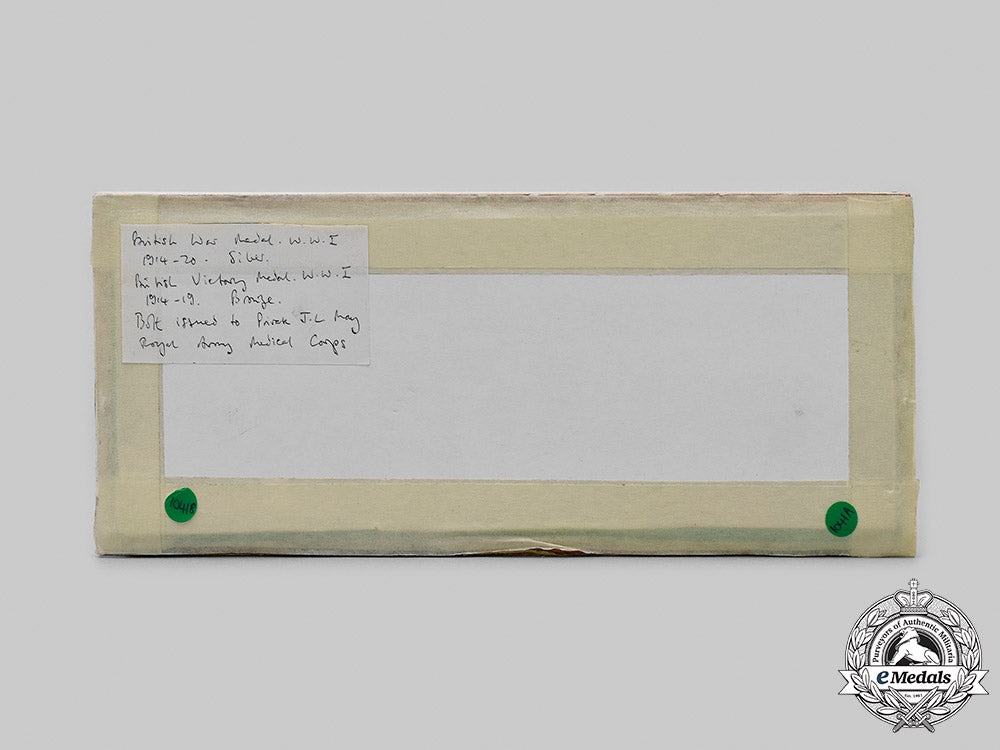 British War Medal. W.W.I
1914-20. Silver.
British Victory Medal. W.W.I
1914-19. Bronze.
Both issued to Private J.L May
Royal Army Medical Corps
1041B
1041A
Purveyors of Authentic Militaria
eMedals